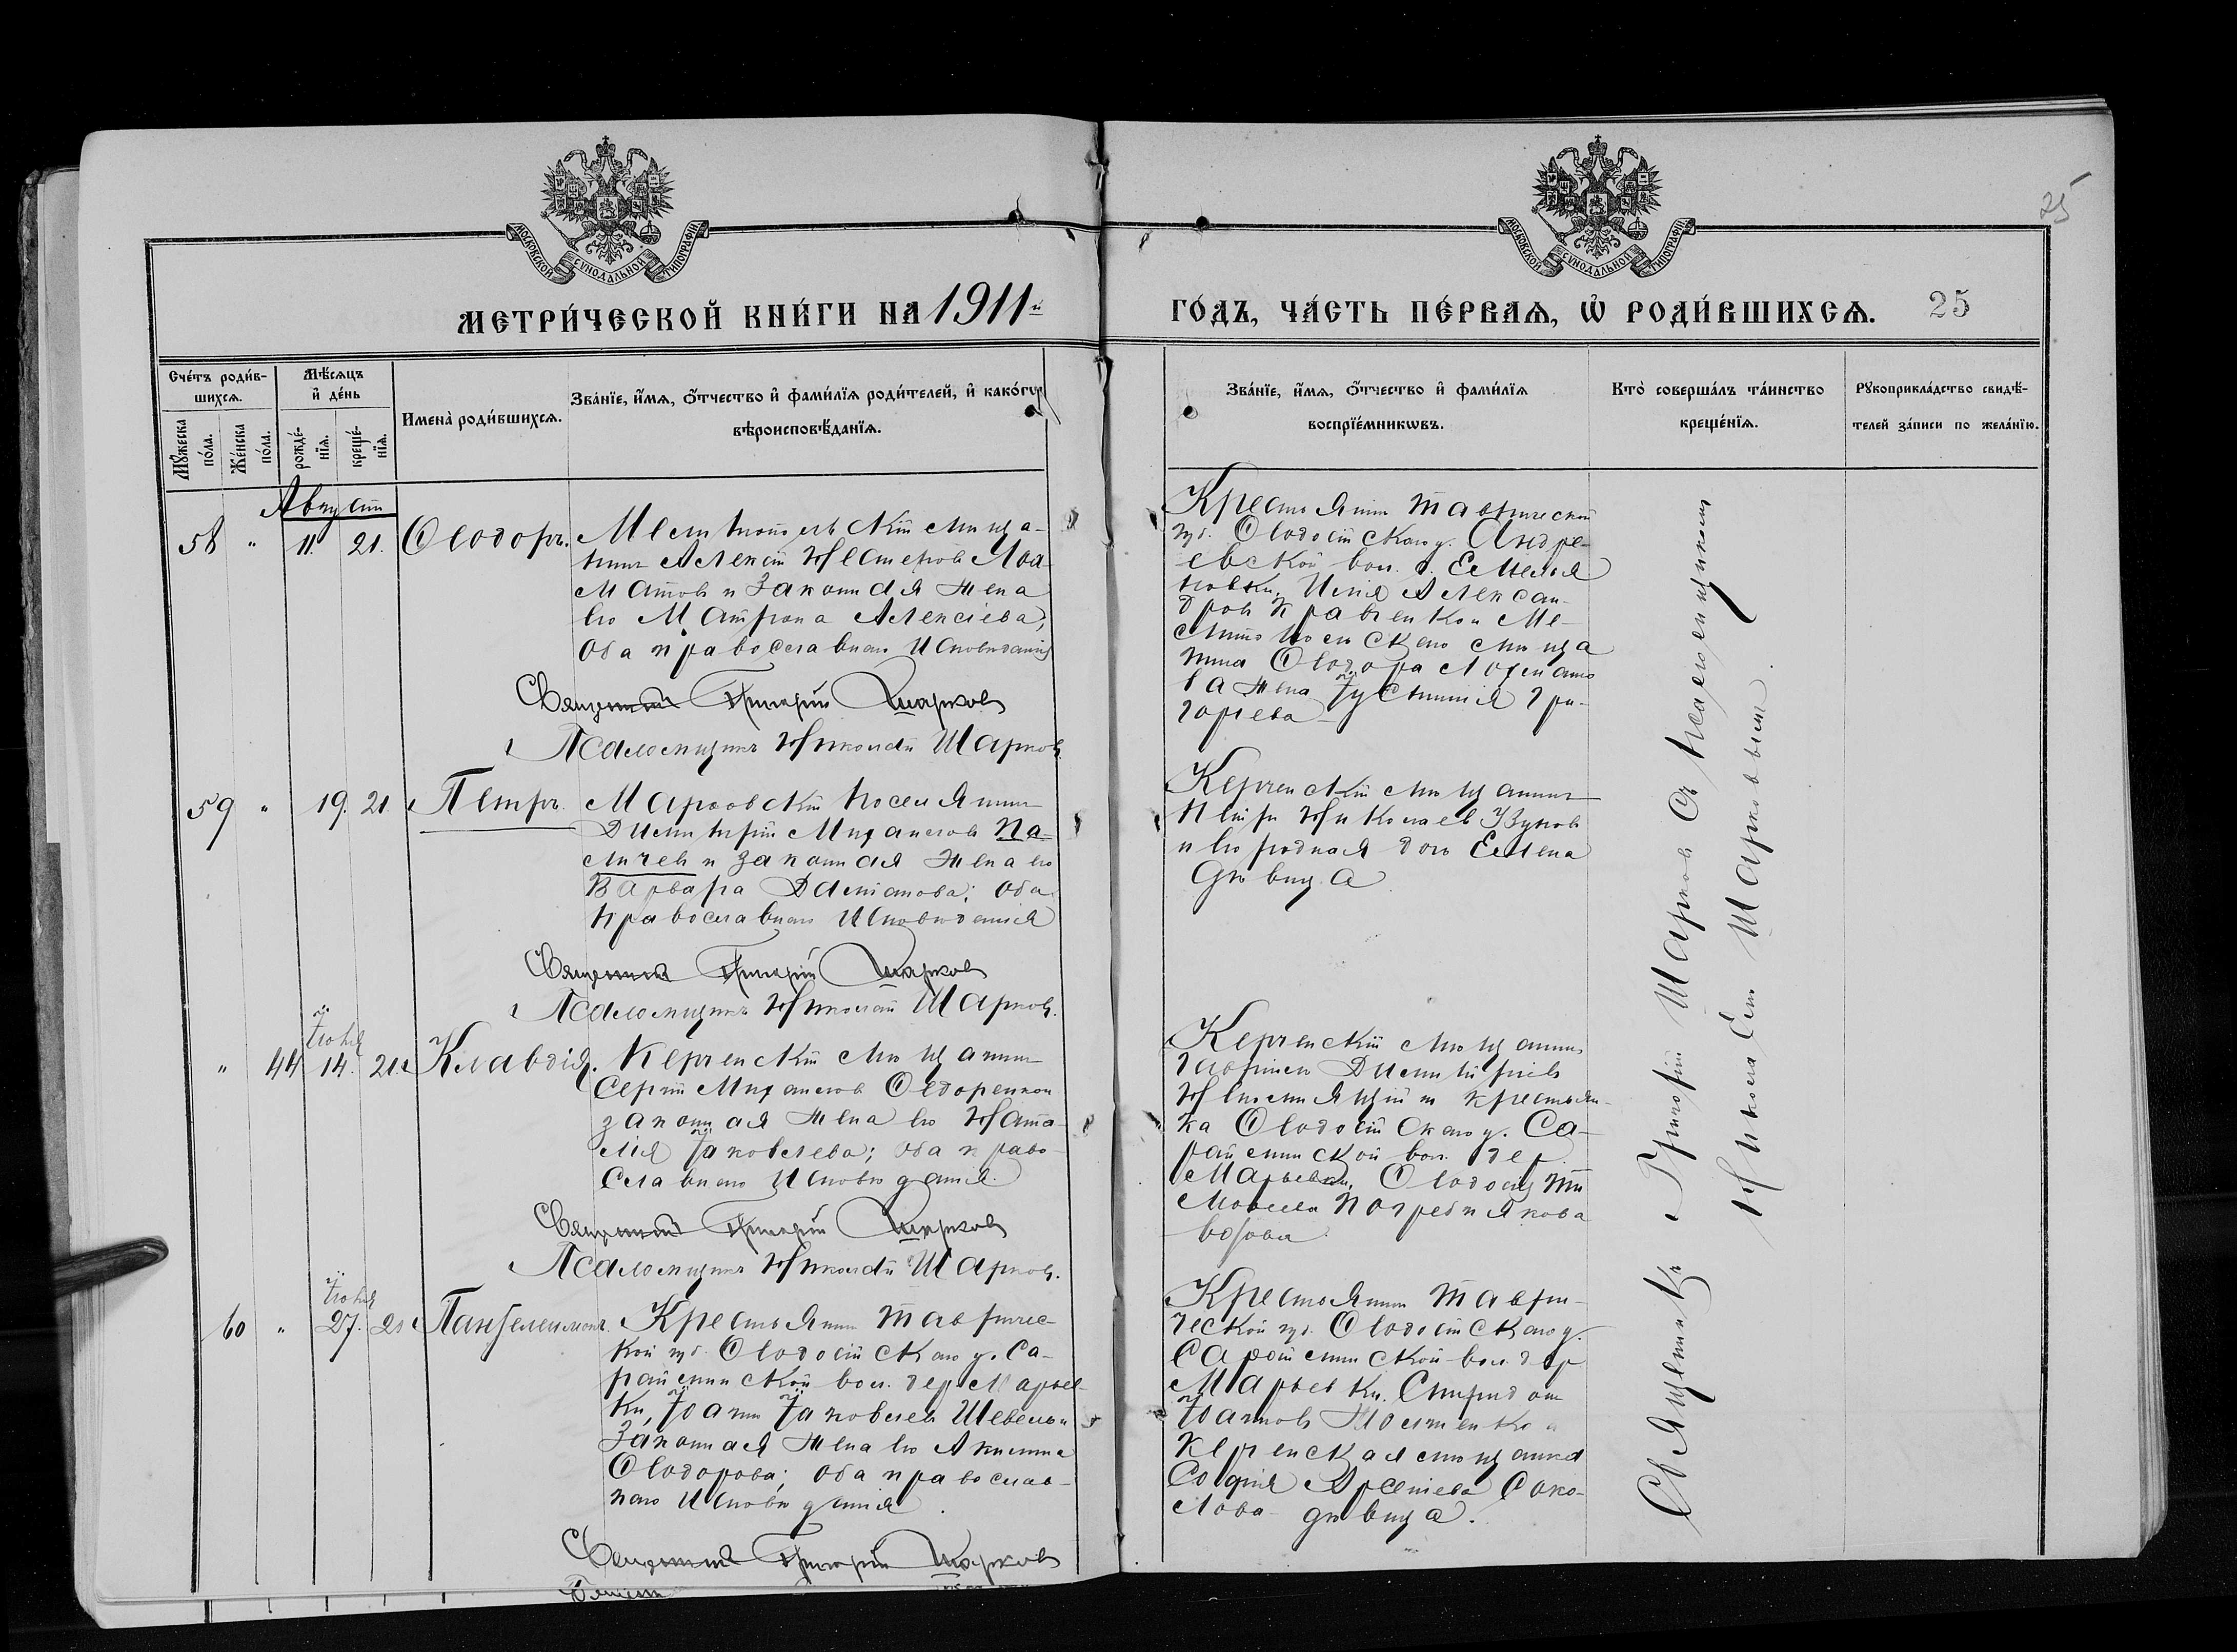 25
МОСКОВСКОЙ СѴНОДАЛЬНОЙ ТИПОГРАФІИ
МОСКОВСКОЙ СѴНОДАЛЬНОЙ ТИПОГРАФІИ
МЕТРИ́ЧЕСКОЙ КНИ́ГИ НА 1911й
ГО́ДЪ, ЧА́СТЬ ПЕ́РВАѦ, Ѡ РОДИ́ВШИХСѦ. 25
Сче́тъ роди́в-
шихсѧ.
Мꙋ́жеска по́ла.
Же́нска по́ла.
Мѣ́сѧцъ
и҆ де́нь
рожде́-
нїѧ.
креще́-
нїѧ.
Имена̀ роди́вшихсѧ.
Зва́нїе, и҆́мѧ, ѻ҆́тчество и҆ фами́лїѧ роди́телей, и҆ како́гѡ
вѣроисповѣ́данїѧ.
Зва́нїе, и҆́мѧ, ѻ҆́тчество и҆ фами́лїѧ
воспрїе́мникѡвъ.
Кто̀ соверша́лъ та́инство
креще́нїѧ.
Рꙋкоприкла́дство свидѣ́-
телей за́писи по жела́нїю.
Августъ
58 " 11. 21. Ѳеодоръ.
Мелитопольскій мѣща-
нинъ Алексій Нестеровъ
и законная жена
его Матрона Алексіева;
оба православнаго исповѣданія
Священникъ Григорій Шарковъ
Псаломщикъ Николай Шарковъ
Крестьянинъ Таврической
губ. Ѳеодосійскаго у. Андре-
евской вол. д. Емелья
новки, Илія Алексан-
дровъ Кравченко и Ме-
литопольскаго мѣща
нина Ѳеодора
ва жена Іустинія Гри-
горьева
59 " 19. 21. Петръ.
Марфовскій поселянинъ
Димитрій Михаиловъ Па-
личев и законная жена его
Варвара Даміанова; оба
православнаго исповѣданія
Священникъ Григорій Шарковъ
Псаломщикъ Николай Шарковъ.
Керченскій мѣщанинъ
Петръ Николаев Зуковъ
и его родная дочь Елена
дѣвица
Іюля
" 44 14. 21. Клавдія.
Керченскій мѣщанинъ
Сергій Михаиловъ Ѳедоренко и
законная жена его Ната-
лія Іаковлева; оба право-
славнаго исповѣданія.
Священникъ Григорій Шарковъ
Псаломщикъ Николай Шарковъ.
Керченскій мѣщанинъ
Гавріилъ Димитріевъ
и крестьян-
ка Ѳеодосійскаго у. Са-
райминской вол. дер.
Марьевки, Ѳеодосія
Моисеева Погребнякова
вдова.
Іюля
60 " 27. 21 Пантелеимонъ.
Крестьянинъ Тавричес-
кой губ. Ѳеодосійскаго у. Са-
райминской вол. дер. Марьев-
ки, Іоаннъ Іаковлевъ Шевель и
законная жена его Акилина
Ѳеодорова; оба православ-
наго исповѣданія.
Священникъ Григорій Шарковъ
Крестьянинъ Таври-
ческой губ. Ѳеодосійскаго у.
Сарайминской вол. дер
Марьевки, Спиридонъ
Іоанновъ и
Керченская мѣщанка
Софія Арсеніева Соко-
лова дѣвица.
Священникъ Григорій Шарковъ съ псаломщикомъ
Николаемъ Шарковымъ.